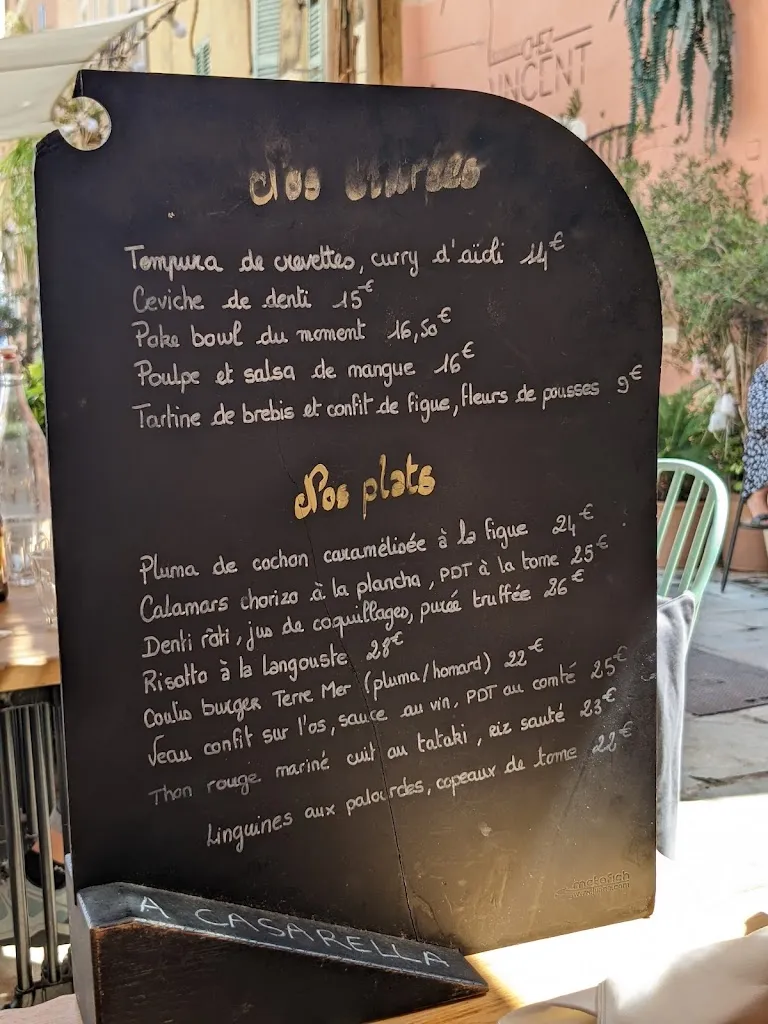 CHEZ
VINCENT
Nos entrées
Tempura de crevettes, curry d'aïoli 14€
Ceviche de denti 15€
Poke bowl du moment 16,50€
Poulpe et salsa de mangue 16€
Tartine de brebis et confit de figue, fleurs de pousses 9€
Nos plats
Pluma de cochon caramélisée à la figue 24€
Calamars chorizo à la plancha, PDT à la tome 25€
Denti rôti, jus de coquillages, purée truffée 26€
Risotto à la langouste 28€
Coulis burger Terre Mer (pluma/homard) 22€
Veau confit sur l'os, sauce au vin, PDT au comté 25€
Thon rouge mariné cuit au tataki, riz sauté 23€
Linguines aux palourdes, copeaux de tome 22€
A CASARELLA